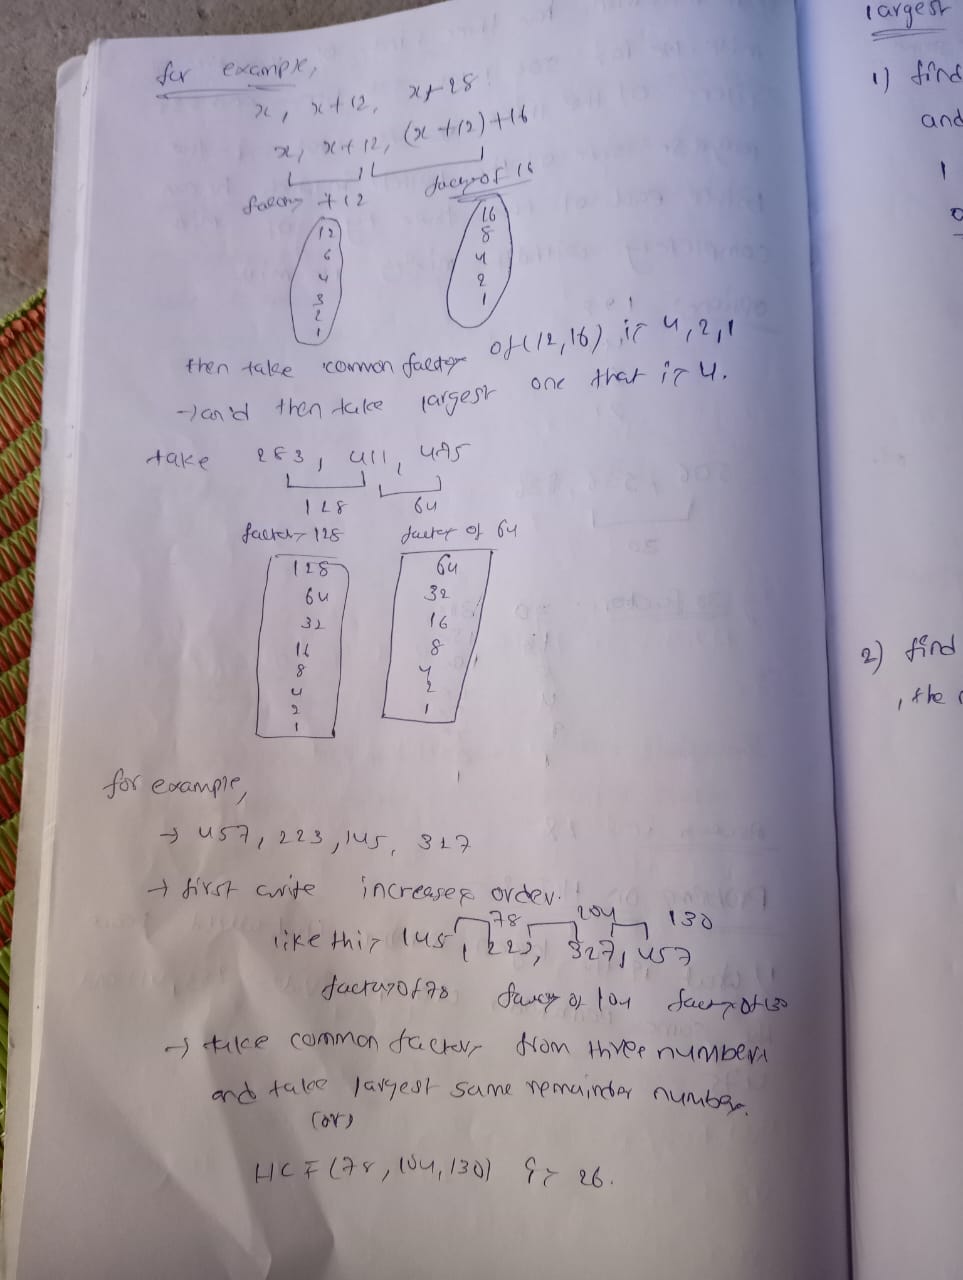 for example,
x, x+12, x+28
x, x+12, (x+12)+16
factors +12 factors of 16
12 16
6 8
4 4
3 2
2 1
1
then take common factors of (12,16) is 4,2,1
→ and then take largest one that is 4.
take 283, 411, 475
128 64
factors 128 factor of 64
128 64
64 32
32 16
16 8
8 4
4 2
2 1
1
for example,
→ 457, 223, 145, 327
→ first write increases order.
78 104 130
like this 145, 223, 327, 457
factors of 78 factors of 104 factors of 130
→ take common factors from three numbers
and take largest same remainder number.
(or)
HCF (78, 104, 130) is 26.
largest
1) find
and
1
2) find
, the